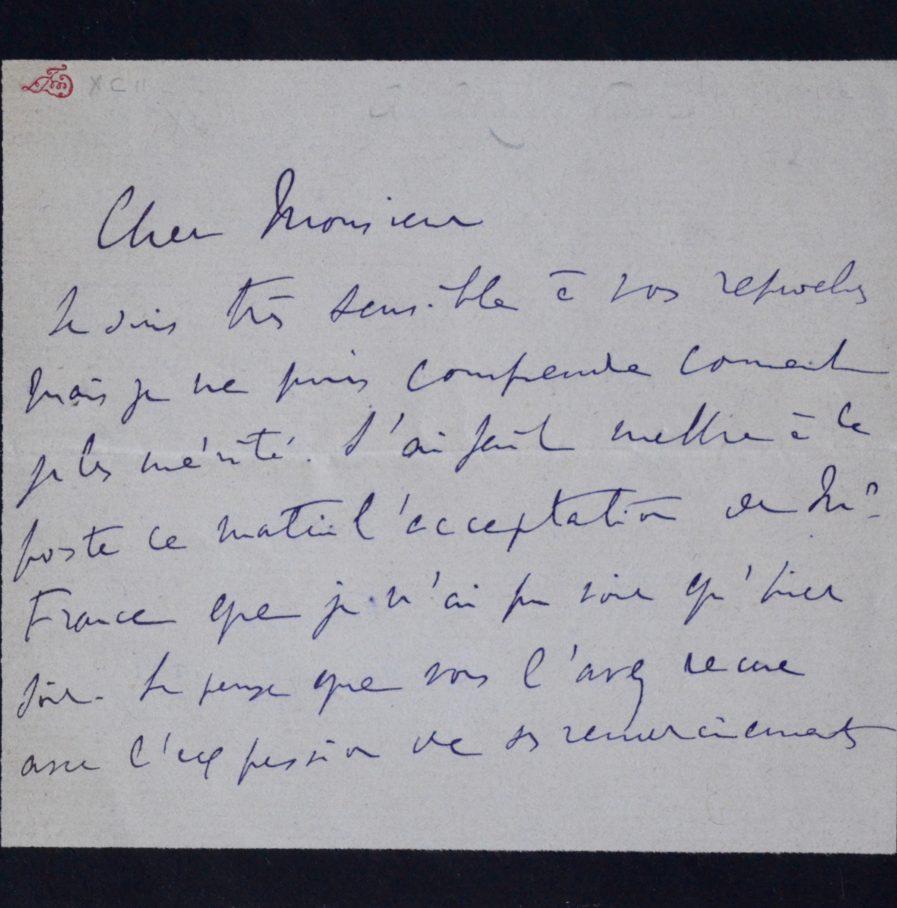 XCII
Cher Monsieur
Je suis très sensible à vos reproches
mais je ne puis comprendre coment
je les mérité. J'ai fait mettre à la
poste ce matin l'acceptation de Mr
France que je n'ai pu voir qu'hier
soir. Je pense que vous l'avez recue
avec l'expression de ses remerciements